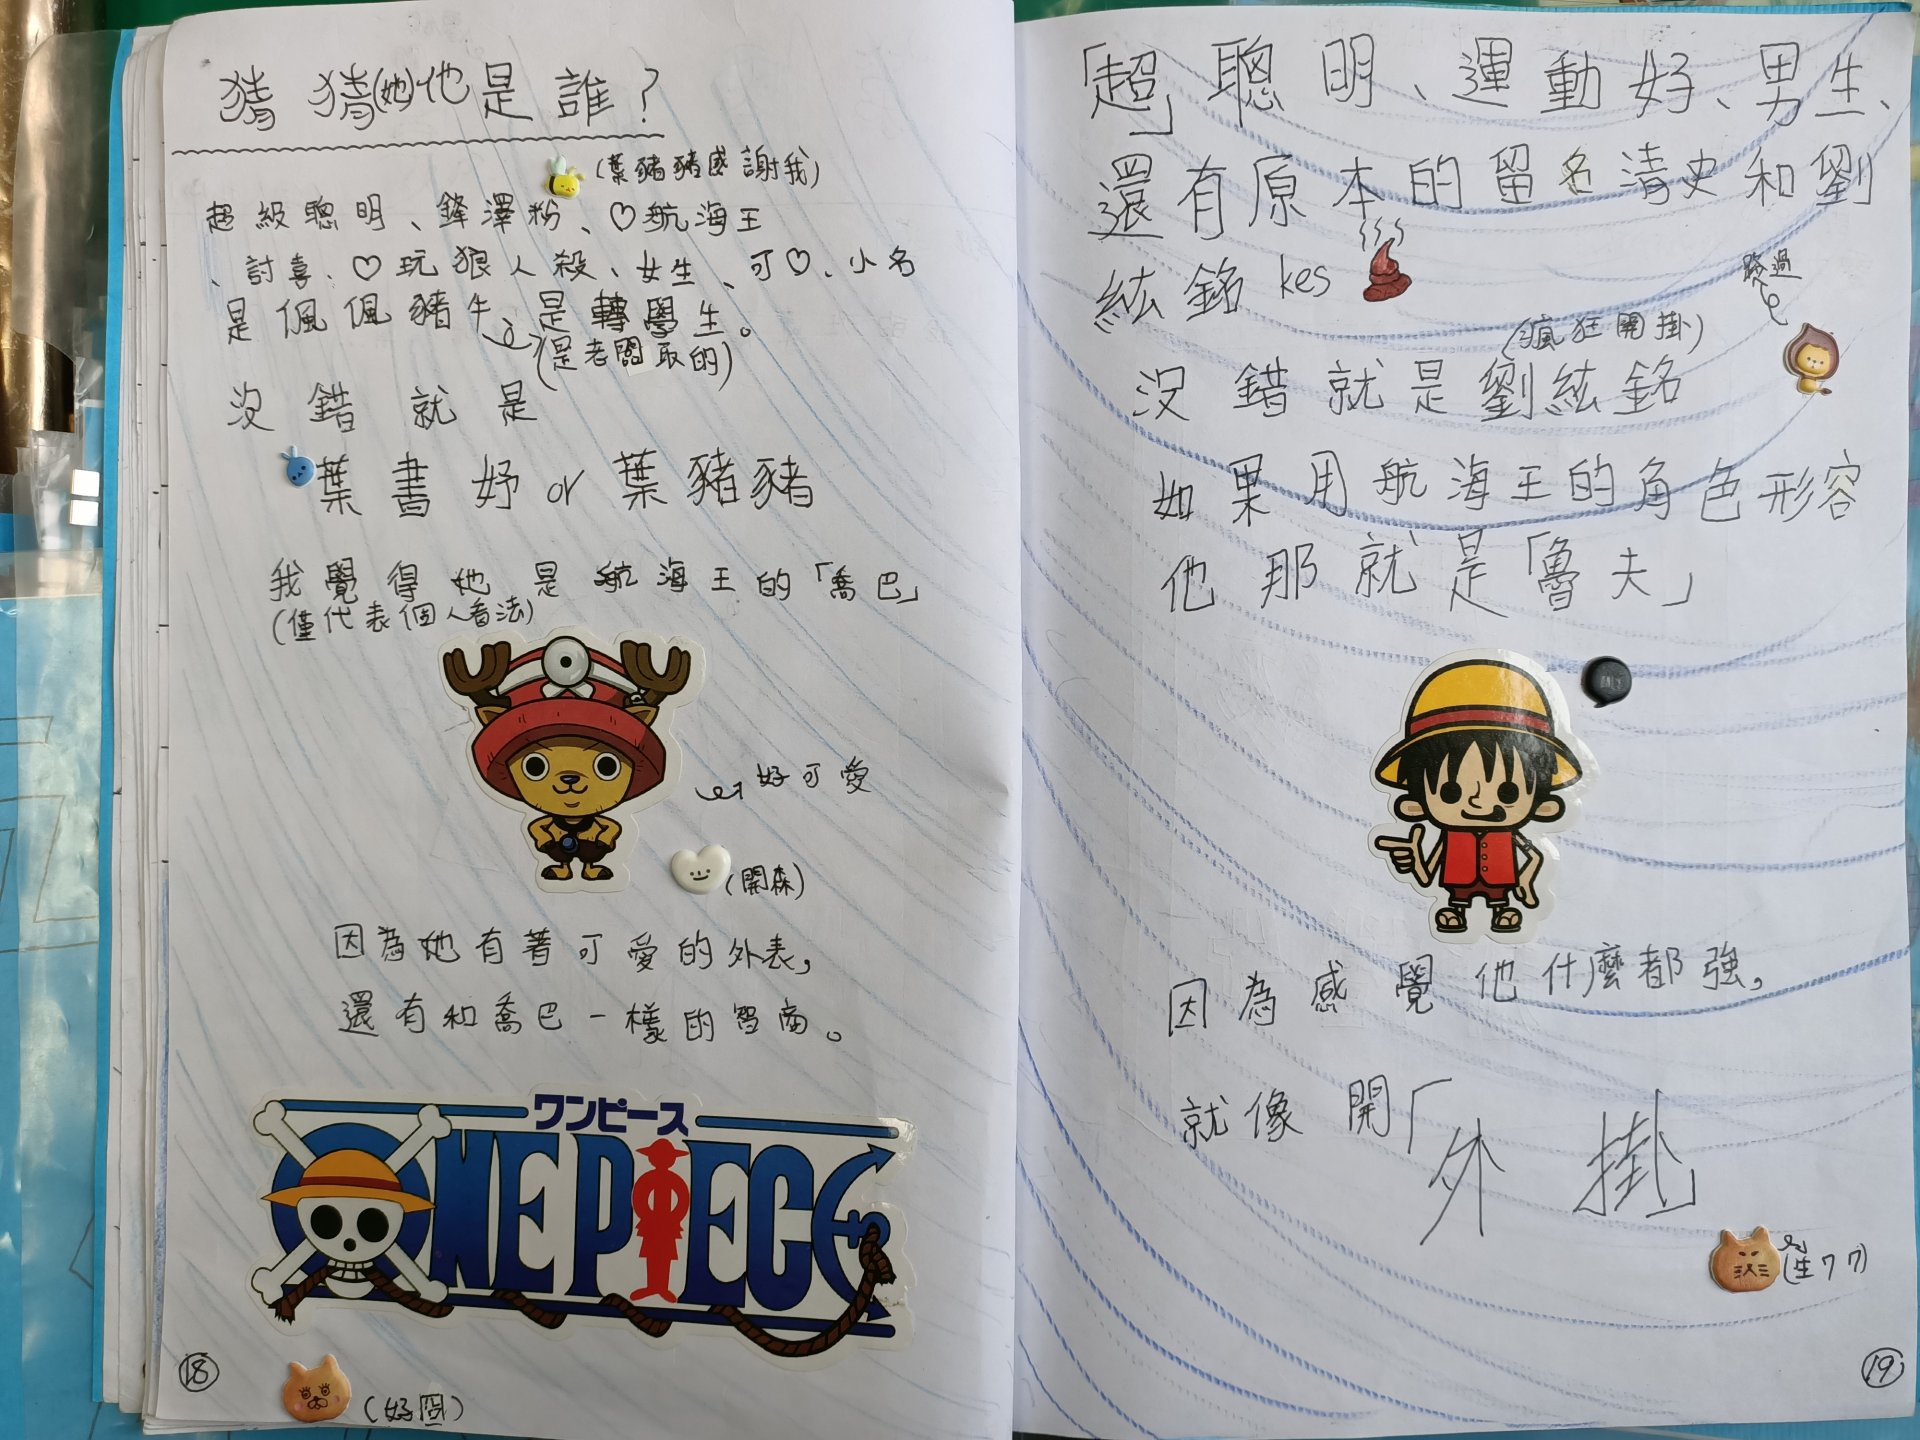 猜猜(她)他是誰?
(葉豬豬感謝我)
超級聰明、鋒澤粉、♡航海王
、討喜、♡玩狼人殺、女生、可♡、小名
是佩佩豬牛、是轉學生。
(是老闆取的)
沒錯就是
葉書妤or葉豬豬
我覺得她是航海王的「喬巴」
(僅代表個人看法)
好可愛
(開森)
因為她有著可愛的外表,
還有和喬巴一樣的智商。
ワンピース
ONE PIECE
18
(好囧)
「超」聰明、運動好、男生、
還有原本的留名清史和劉
紘銘kes
路過
(瘋狂開掛)
沒錯就是劉紘銘
如果用航海王的角色形容
他那就是「魯夫」
因為感覺他什麼都強,
就像開「外掛」
(生77)
19